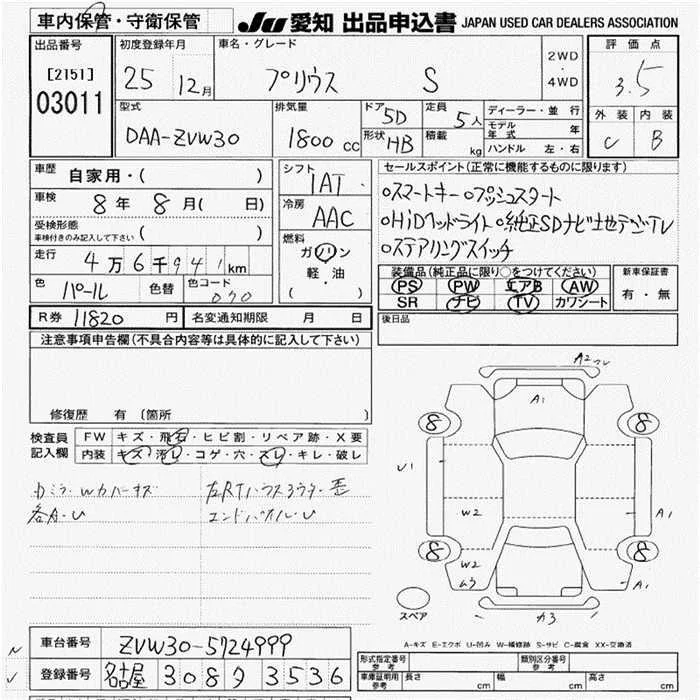 車内保管・守衛保管
JU 愛知 出品申込書 JAPAN USED CAR DEALERS ASSOCIATION
出品番号 初度登録年月 車名・グレード 2WD・4WD 評価点
[2151] 03011 25 12月 プリウス S 3.5
型式 排気量 ドア 5D 定員 5人 ディーラー・並行 外装 内装
DAA-ZVW30 1800cc 形状 HB 積載 kg モデル年式 年 C B
ハンドル 左・右
車歴 自家用・( ) シフト 1AT セールスポイント(正常に機能するものに限ります)
車検 8年 8月( 日) 冷房 AAC ○スマートキー ○プッシュスタート
受検形態 車検付きのみ記入して下さい ( ) ○HiDヘッドライト ○純正SDナビ地デジTV
燃料 ガソリン 軽・油 ( ・ ) ○ステアリングスイッチ
走行 4万6千941km
装備品(純正品に限り○をつけてください) 新車保証書
色 パール 色替 色コード 070 PS PW エアB AW 有・無
SR ナビ TV カワシート
R券 11820円 名変通知期限 月 日 後日品
注意事項申告欄(不具合内容等は具体的に記入して下さい)
修復歴 有 (箇所 )
検査員記入欄 FW キズ・飛石・ヒビ割・リペア跡・X要
内装 キズ・汚レ・コゲ・穴・スレ・キレ・破レ
各A・U エンドパネル・U
A2
A1
8 8
U1
W2 A1
8 8
W2 A1
スペア カ3
A-キズ E-エクボ U-凹み W-補修跡 S-サビ C-腐食 XX-交換済
車台番号 ZVW30-5724999
登録番号 名古屋 308 3536
形式指定番号 参考 類別区分番号 参考
車庫証明用 参考 長さ cm 幅 cm 高さ cm